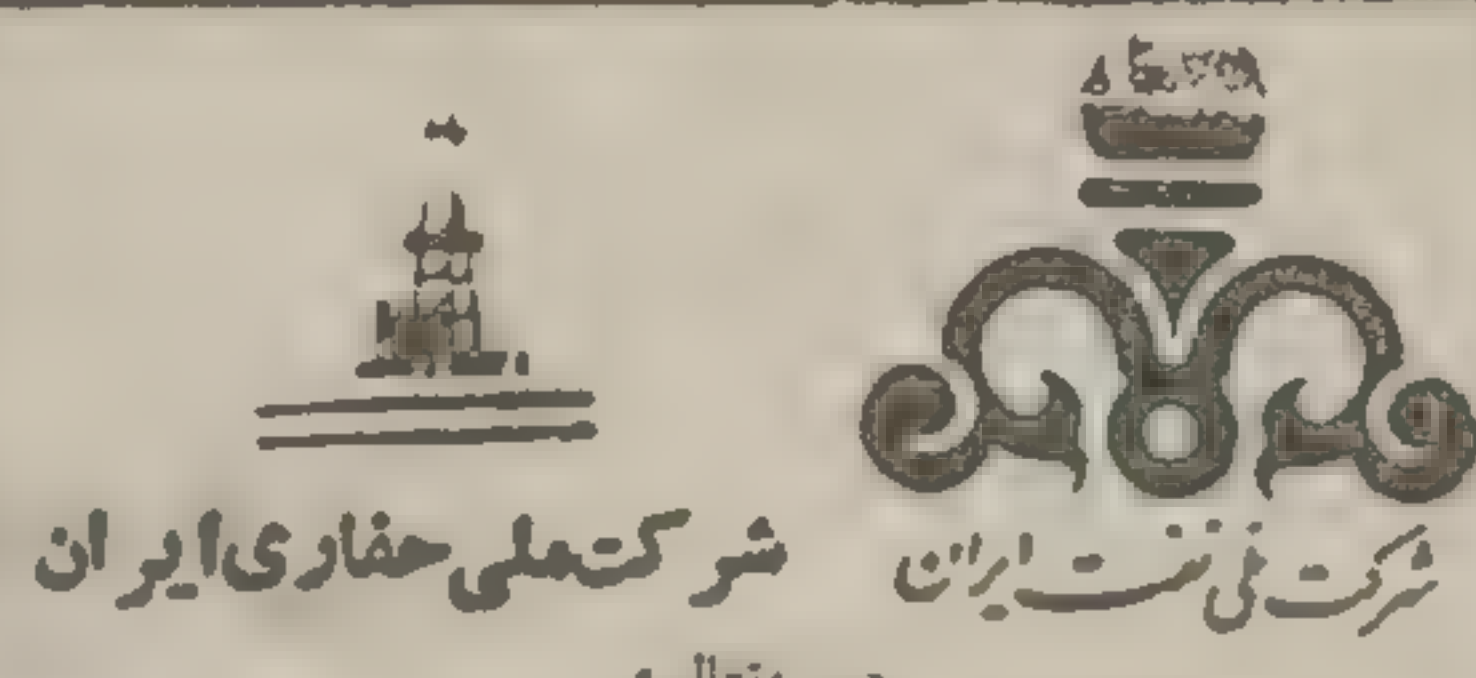 شرکت ملی نفت ایران
شرکت ملی حفاری ایران